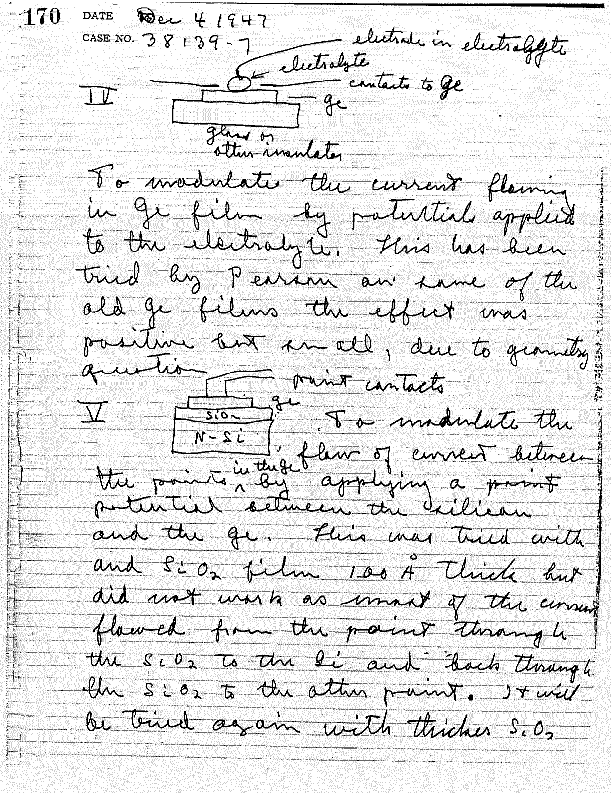 170 DATE Dec 4 1947
CASE NO. 38139-7
electrode in electrolyte
electrolyte
contacts to Ge
IV
Ge
glass or
other insulator
To modulate the current flowing
in Ge film by potentials applied
to the electrolyte. This has been
tried by Pearson on some of the
old Ge films the effect was
positive but small, due to geometry
question
point contacts
Ge
V
SiO2
To modulate the
N-Si
flow of current between
the points in the Ge by applying a point
potential between the silicon
and the Ge. This was tried with
and SiO2 film 100 Å thick but
did not work as most of the current
flowed from the point through
the SiO2 to the Si and back through
the SiO2 to the other point. It will
be tried again with thicker SiO2